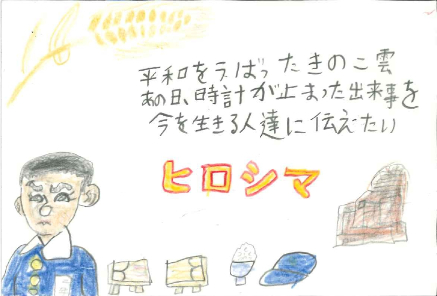 平和をうばったきのこ雲
あの日、時計が止まった出来事を
今を生きる人達に伝えたい
ヒロシマ